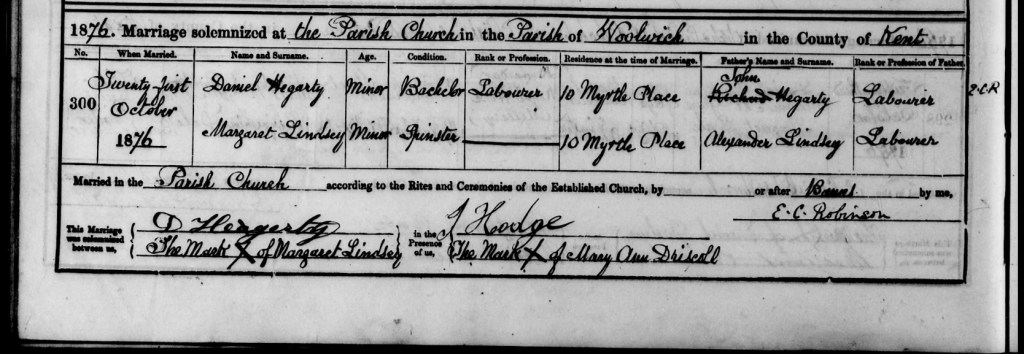 1876. Marriage solemnized at the Parish Church in the Parish of Woolwich in the County of Kent
No. When Married. Name and Surname. Age. Condition. Rank or Profession. Residence at the time of Marriage. Father's Name and Surname. Rank or Profession of Father.
300 Twenty-first October 1876
Daniel Hegarty Minor Bachelor Labourer 10 Myrtle Place John Richard Hegarty Labourer
Margaret Lindsey Minor Spinster 10 Myrtle Place Alexander Lindsey Labourer
E.C.R
Married in the Parish Church according to the Rites and Ceremonies of the Established Church, by or after Banns by me,
E. C. Robinson
This Marriage was solemnized between us,
D Hegarty
The Mark X of Margaret Lindsey
in the Presence of us,
J Hodge
The Mark X of Mary Ann Driscoll